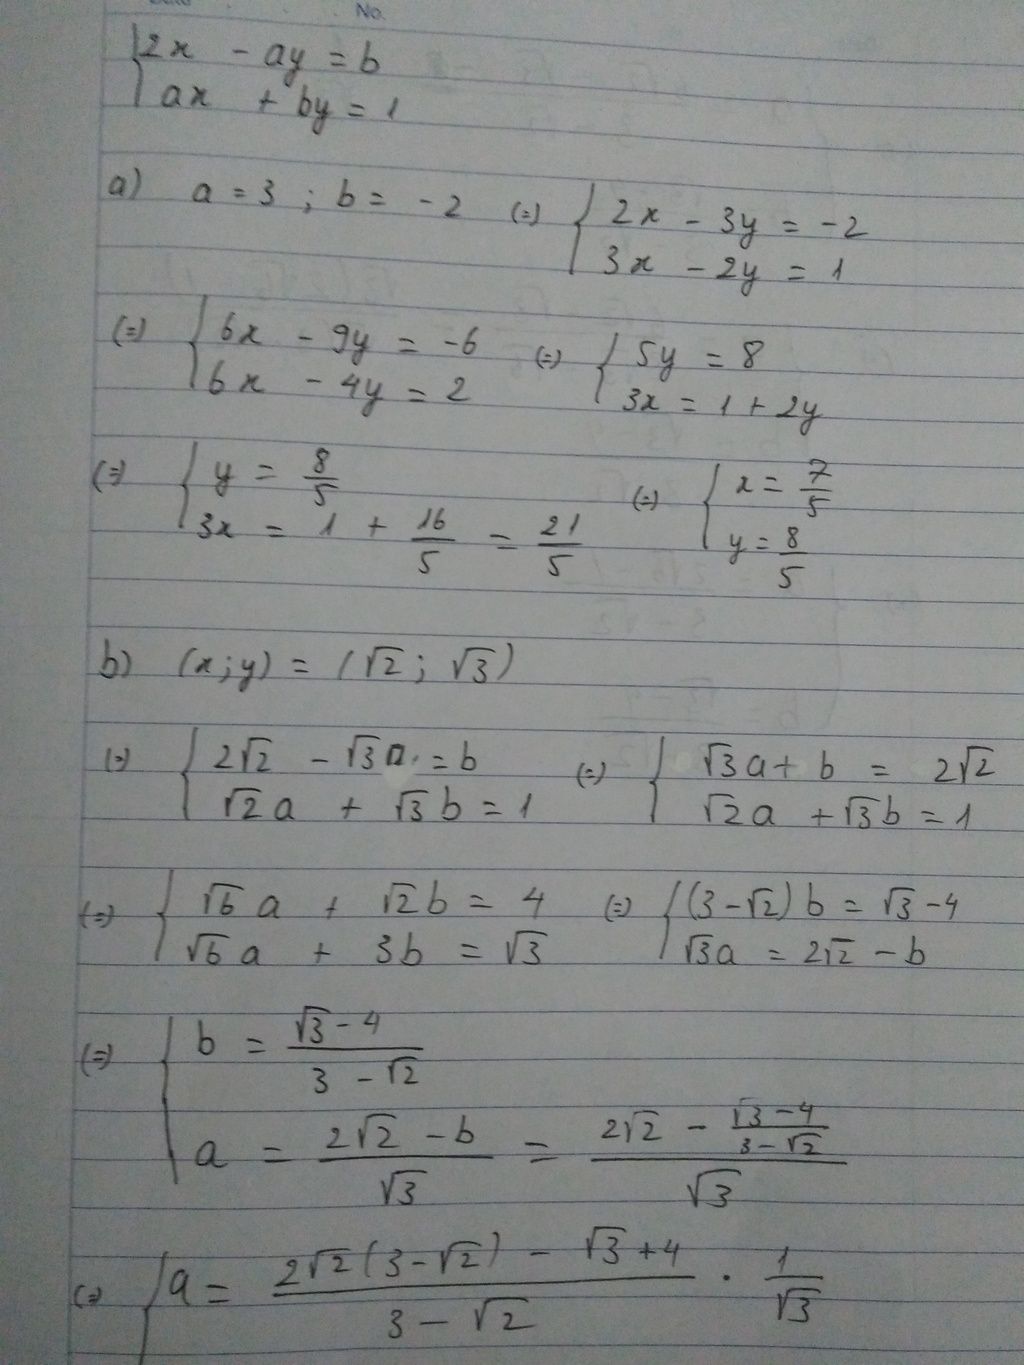 No.
{2x - ay = b
ax + by = 1
a) a = 3 ; b = -2 (=) {2x - 3y = -2
3x - 2y = 1
(=) {6x - 9y = -6 (=) {5y = 8
6x - 4y = 2 3x = 1 + 2y
(=) {y = 8/5 (=) {x = 7/5
3x = 1 + 16/5 = 21/5 y = 8/5
b) (x; y) = (√2 ; √3)
(=) {2√2 - √3a = b (=) {√3a + b = 2√2
√2a + √3b = 1 √2a + √3b = 1
(=) {√6a + √2b = 4 (=) {(3-√2)b = √3-4
√6a + 3b = √3 √3a = 2√2 - b
(=) {b = (√3-4)/(3-√2)
a = (2√2 - b)/√3 = (2√2 - (√3-4)/(3-√2))/√3
(=) {a = (2√2(3-√2) - √3+4)/(3-√2) . 1/√3